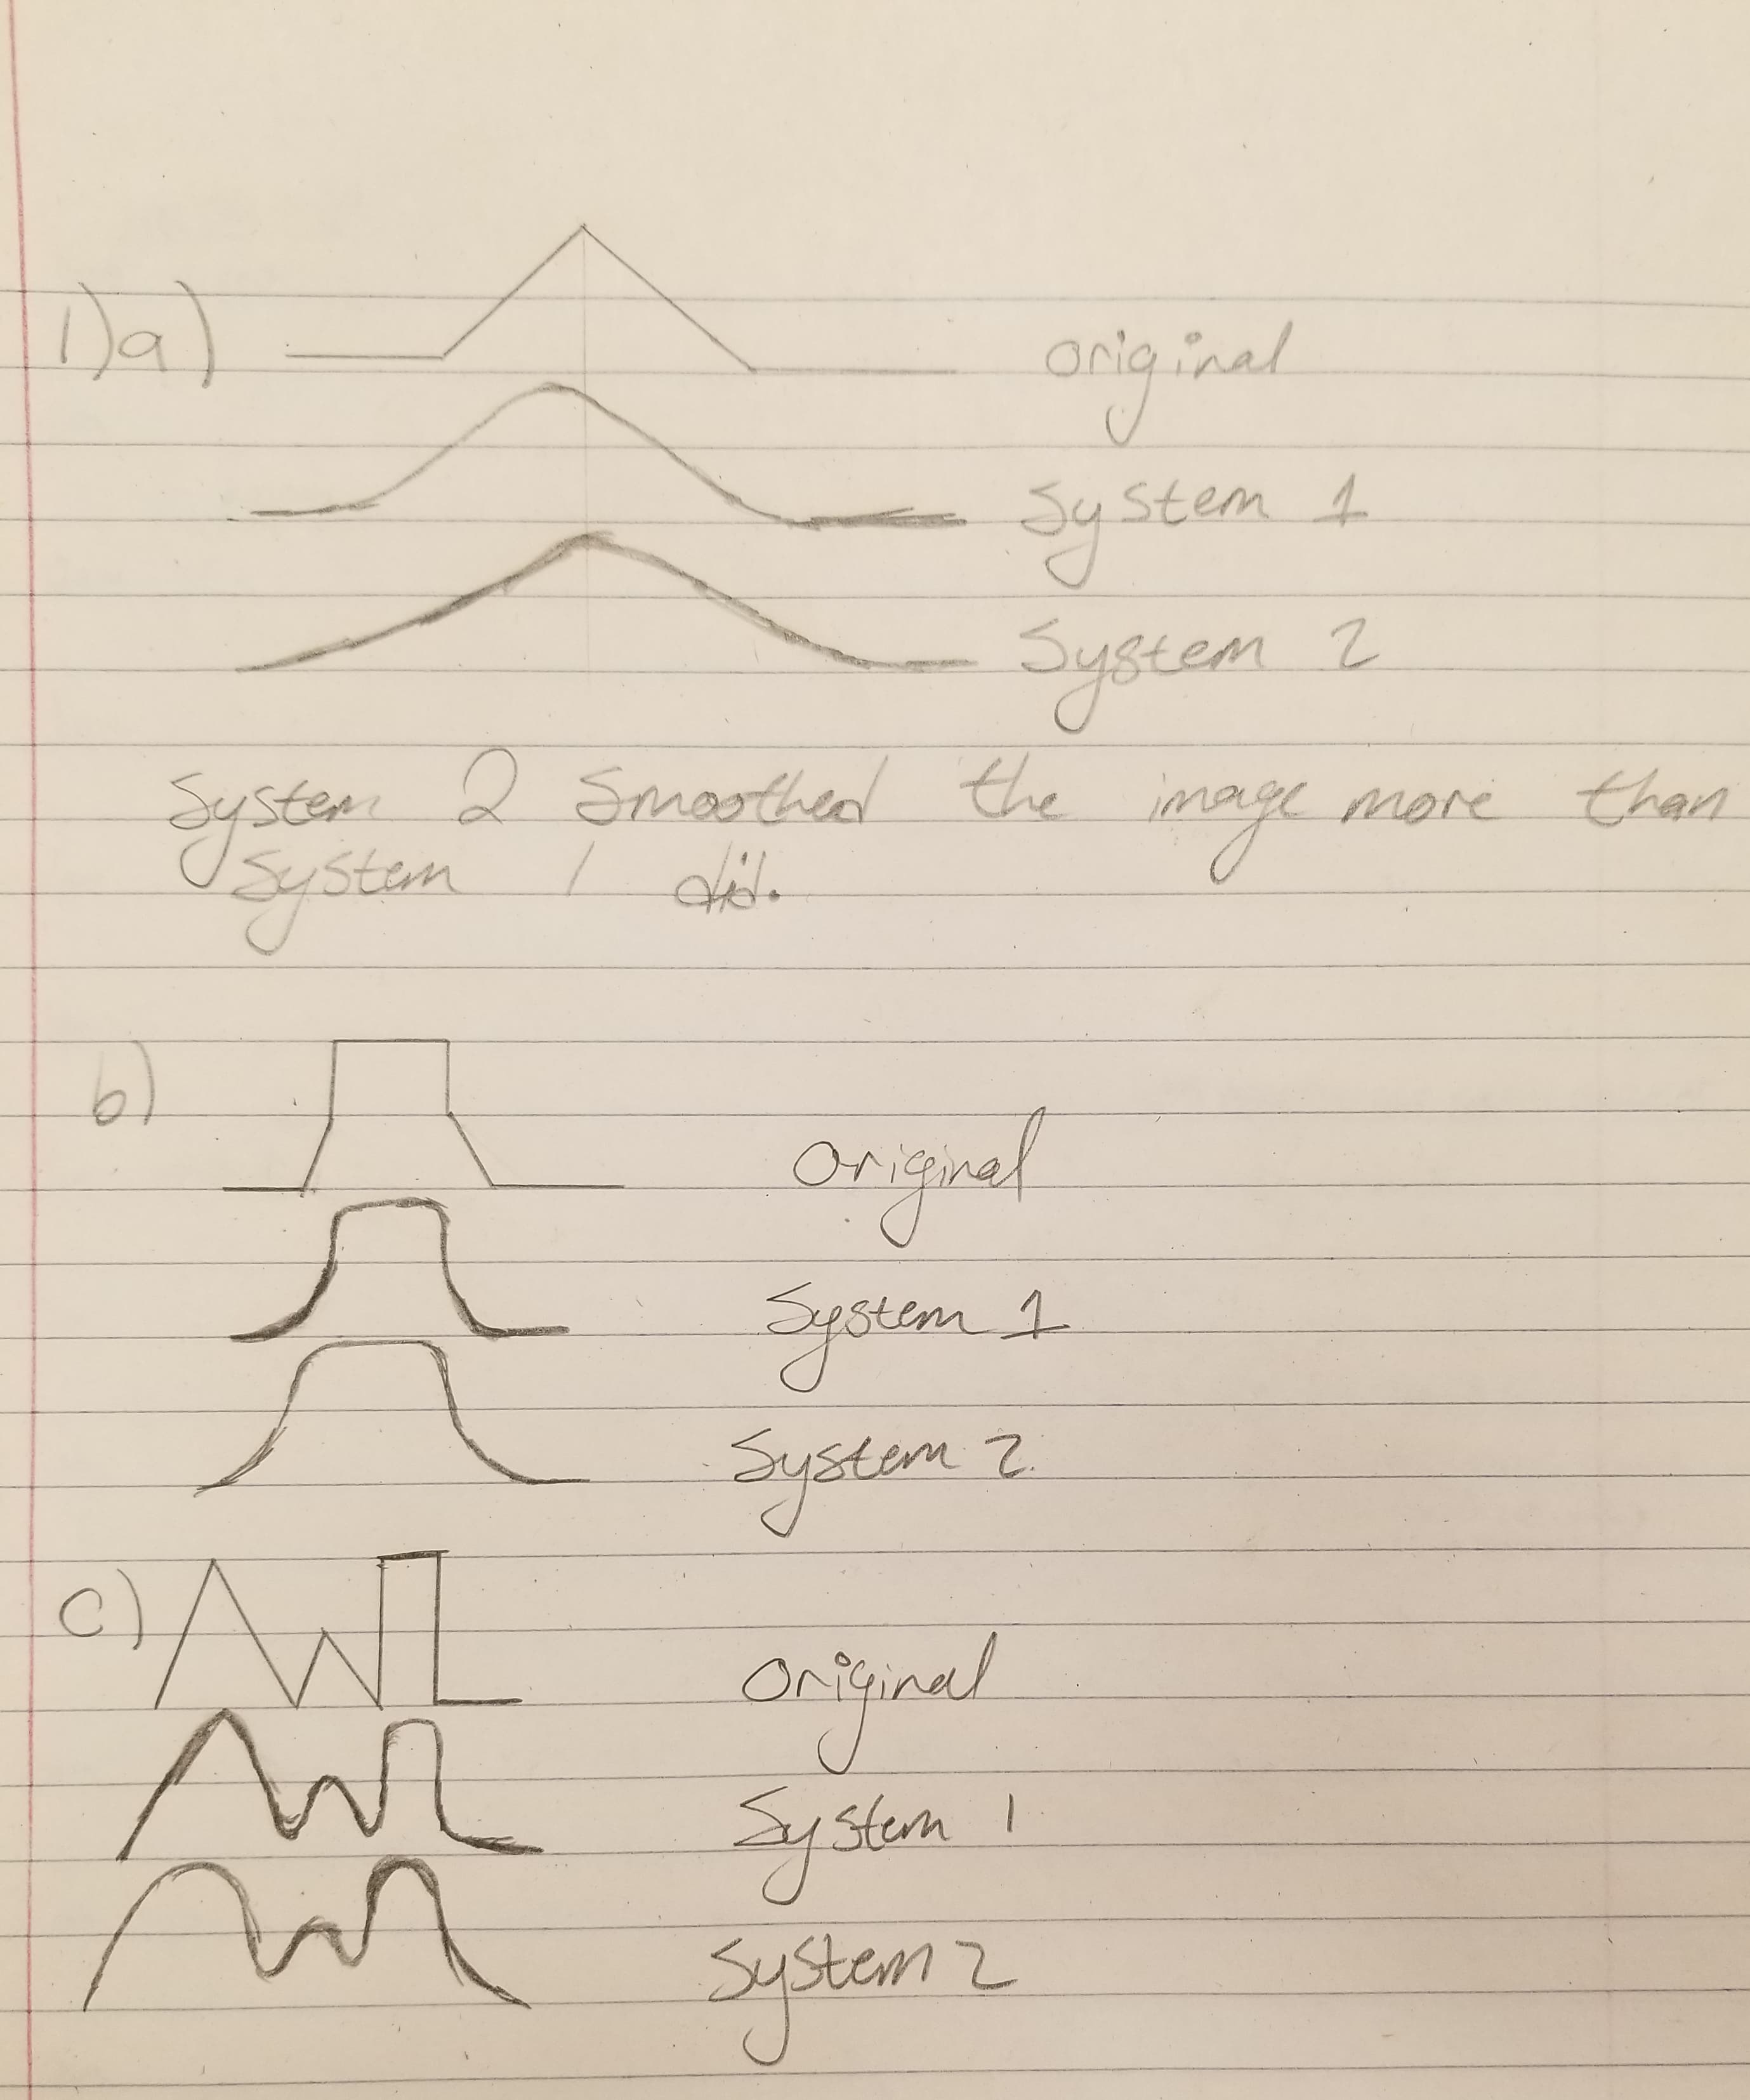 1)a)
original
System 1
System 2
System 2 Smoothed the image more than
System 1 did.
b)
Original
System 1
System 2
c)
Original
System 1
System 2